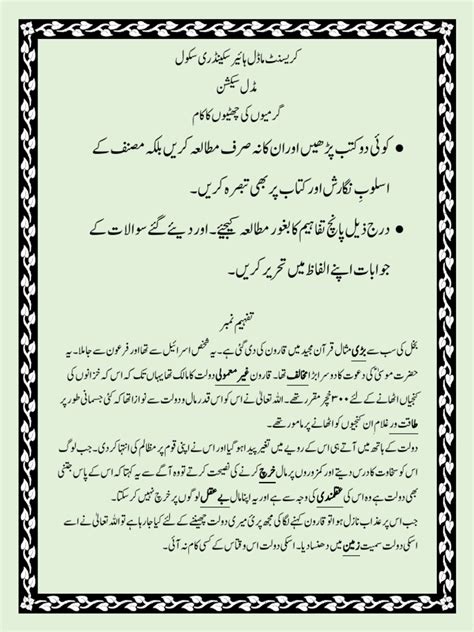 کریسنٹ ماڈل ہائیر سکینڈری سکول
مڈل سیکشن
گرمیوں کی چھٹیوں کا کام
• کوئی دو کتب پڑھیں اور ان کا نہ صرف مطالعہ کریں بلکہ مصنف کے
اسلوبِ نگارش اور کتاب پر بھی تبصرہ کریں۔
• درج ذیل پانچ تفاہیم کا بغور مطالعہ کیجیئے۔ اور دیئے گئے سوالات کے
جوابات اپنے الفاظ میں تحریر کریں۔
تفہیم نمبر
بخل کی سب سے بڑی مثال قرآن مجید میں قارون کی دی گئی ہے۔ یہ شخص اسرائیل سے تھا اور فرعون سے جا ملا۔ یہ
حضرت موسیٰ کی دعوت کا دوسرا بڑا مخالف تھا۔ قارون غیر معمولی دولت کا مالک تھا یہاں تک کہ اس کہ خزانوں کی
کنجیاں اٹھانے کے لئے ۳۰۰ خچر مقرر تھے۔ اللہ تعالیٰ نے اس کو اس قدر مال و دولت سے نوازا تھا کہ کئی جسمانی طور پر
طاقت ور غلام ان کنجیوں کو اٹھانے پر مامور تھے۔
دولت کے ہاتھ میں آتے ہی اس کے رویے میں تغیر پیدا ہو گیا اور اس نے اپنی قوم پر مظالم کی انتہا کر دی۔ جب لوگ
اس کو سخاوت کا درس دیتے اور کمزوروں پر مال خرچ کرنے کی نصیحت کرتے تو وہ آگے سے یہ کہتا کہ اس کے پاس جتنی
بھی دولت ہے وہ اس کی عقلمندی کی وجہ سے ہے اور یہ اپنا مال بے عقل لوگوں پر خرچ نہیں کر سکتا۔
جب اس پر عذاب نازل ہوا تو قارون کہنے لگا کی مجھ پر یہ میری دولت چھیننے کے لئے کیا جا رہا ہے تو اللہ تعالیٰ نے اسے
اسکی دولت سمیت زمین میں دھنسا دیا۔ اسکی دولت اس وقت اس کے کسی کام نہ آئی۔